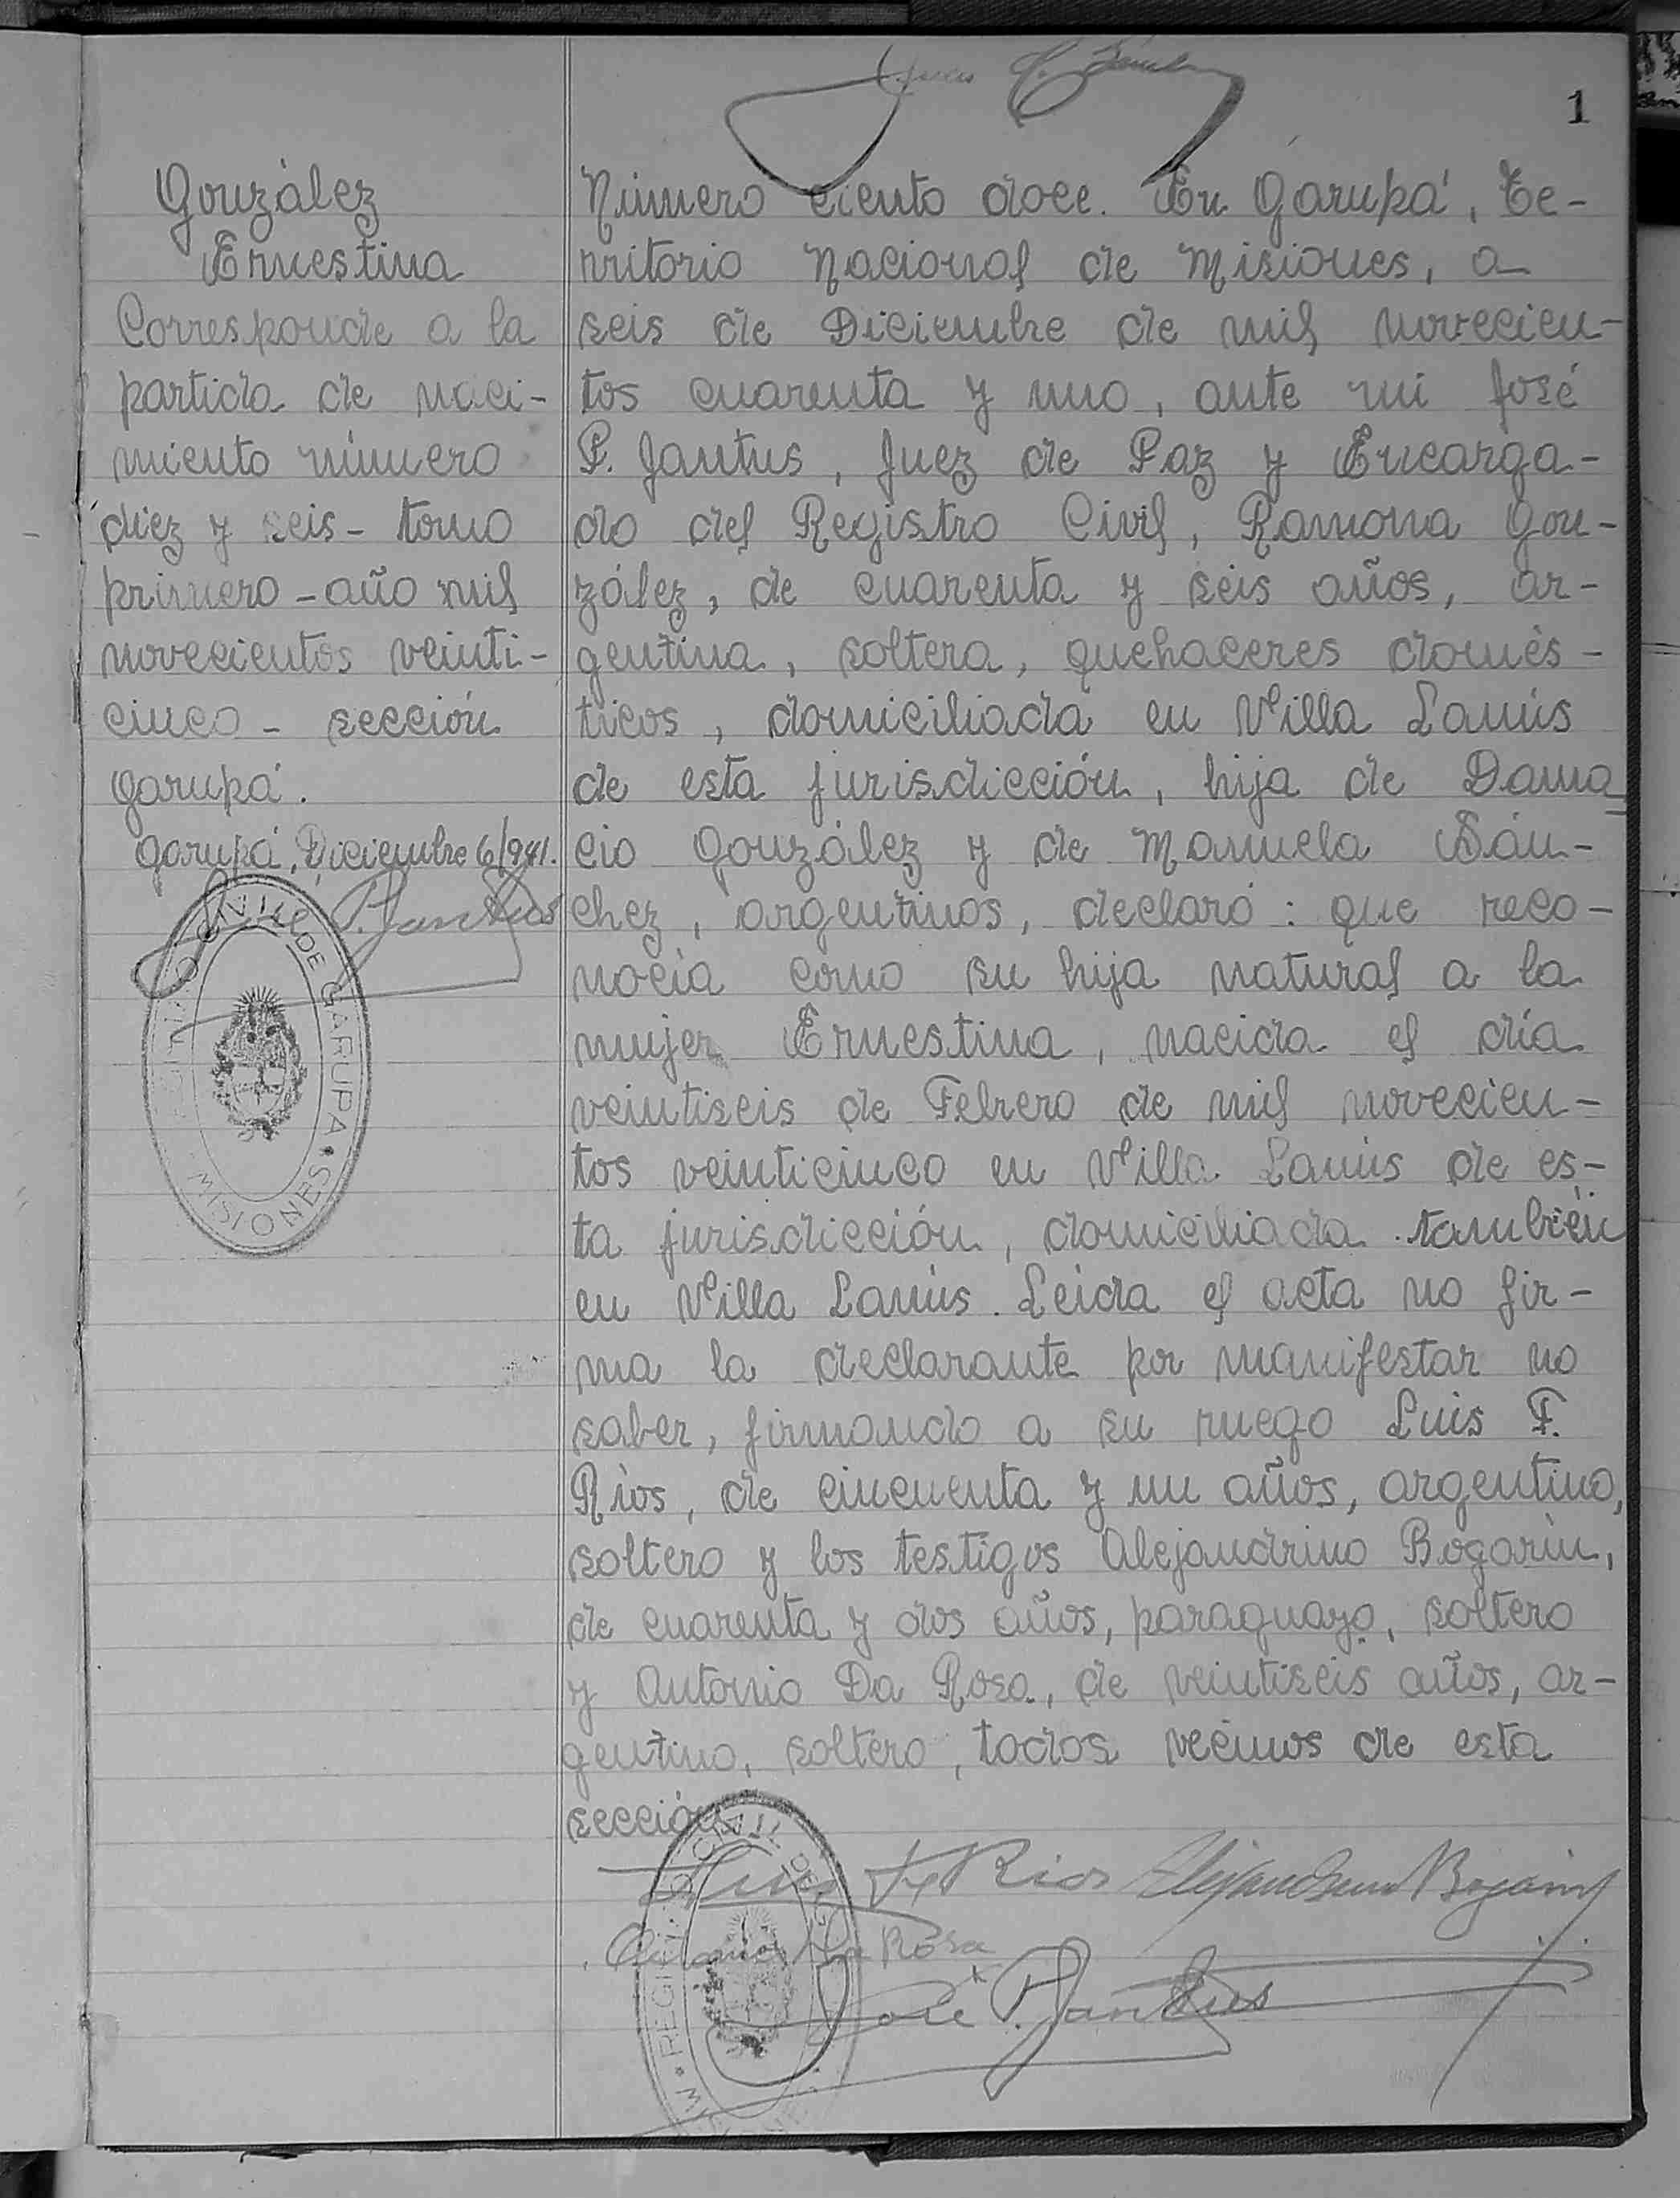 1
González
Ernestina
Corresponde a la
partida de naci-
miento número
diez y seis - tomo
primero - año mil
novecientos veinti-
cinco - sección
Garupá.
Garupá, Diciembre 6/941.
José P. Jantus
REGISTRO CIVIL DE GARUPA • MISIONES
Número ciento doce. En Garupá, Te-
rritorio Nacional de Misiones, a
seis de Diciembre de mil novecien-
tos cuarenta y uno, ante mi José
P. Jantus, Juez de Paz y Encarga-
do del Registro Civil, Ramona Gon-
zález, de cuarenta y seis años, ar-
gentina, soltera, quehaceres domés-
ticos, domiciliada en Villa Lanús
de esta jurisdicción, hija de Dama_
cio González y de Manuela Sán-
chez, argentinos, declaró: que reco-
nocía como su hija natural a la
mujer Ernestina, nacida el día
veintiseis de Febrero de mil novecien-
tos veinticinco en Villa Lanús de es-
ta jurisdicción, domiciliada también
en Villa Lanús. Leida el acta no fir-
ma la declarante por manifestar no
saber, firmando a su ruego Luis F.
Ríos, de cincuenta y un años, argentino,
soltero y los testigos Alejandrino Bogarín,
de cuarenta y dos años, paraguayo, soltero
y Antonio Da Rosa, de veintiseis años, ar-
gentino, soltero, todos vecinos de esta
sección
Luis F. Rios Alejandrino Bogarin
Antonio Da Rosa
José P. Jantus
REGISTRO CIVIL DE